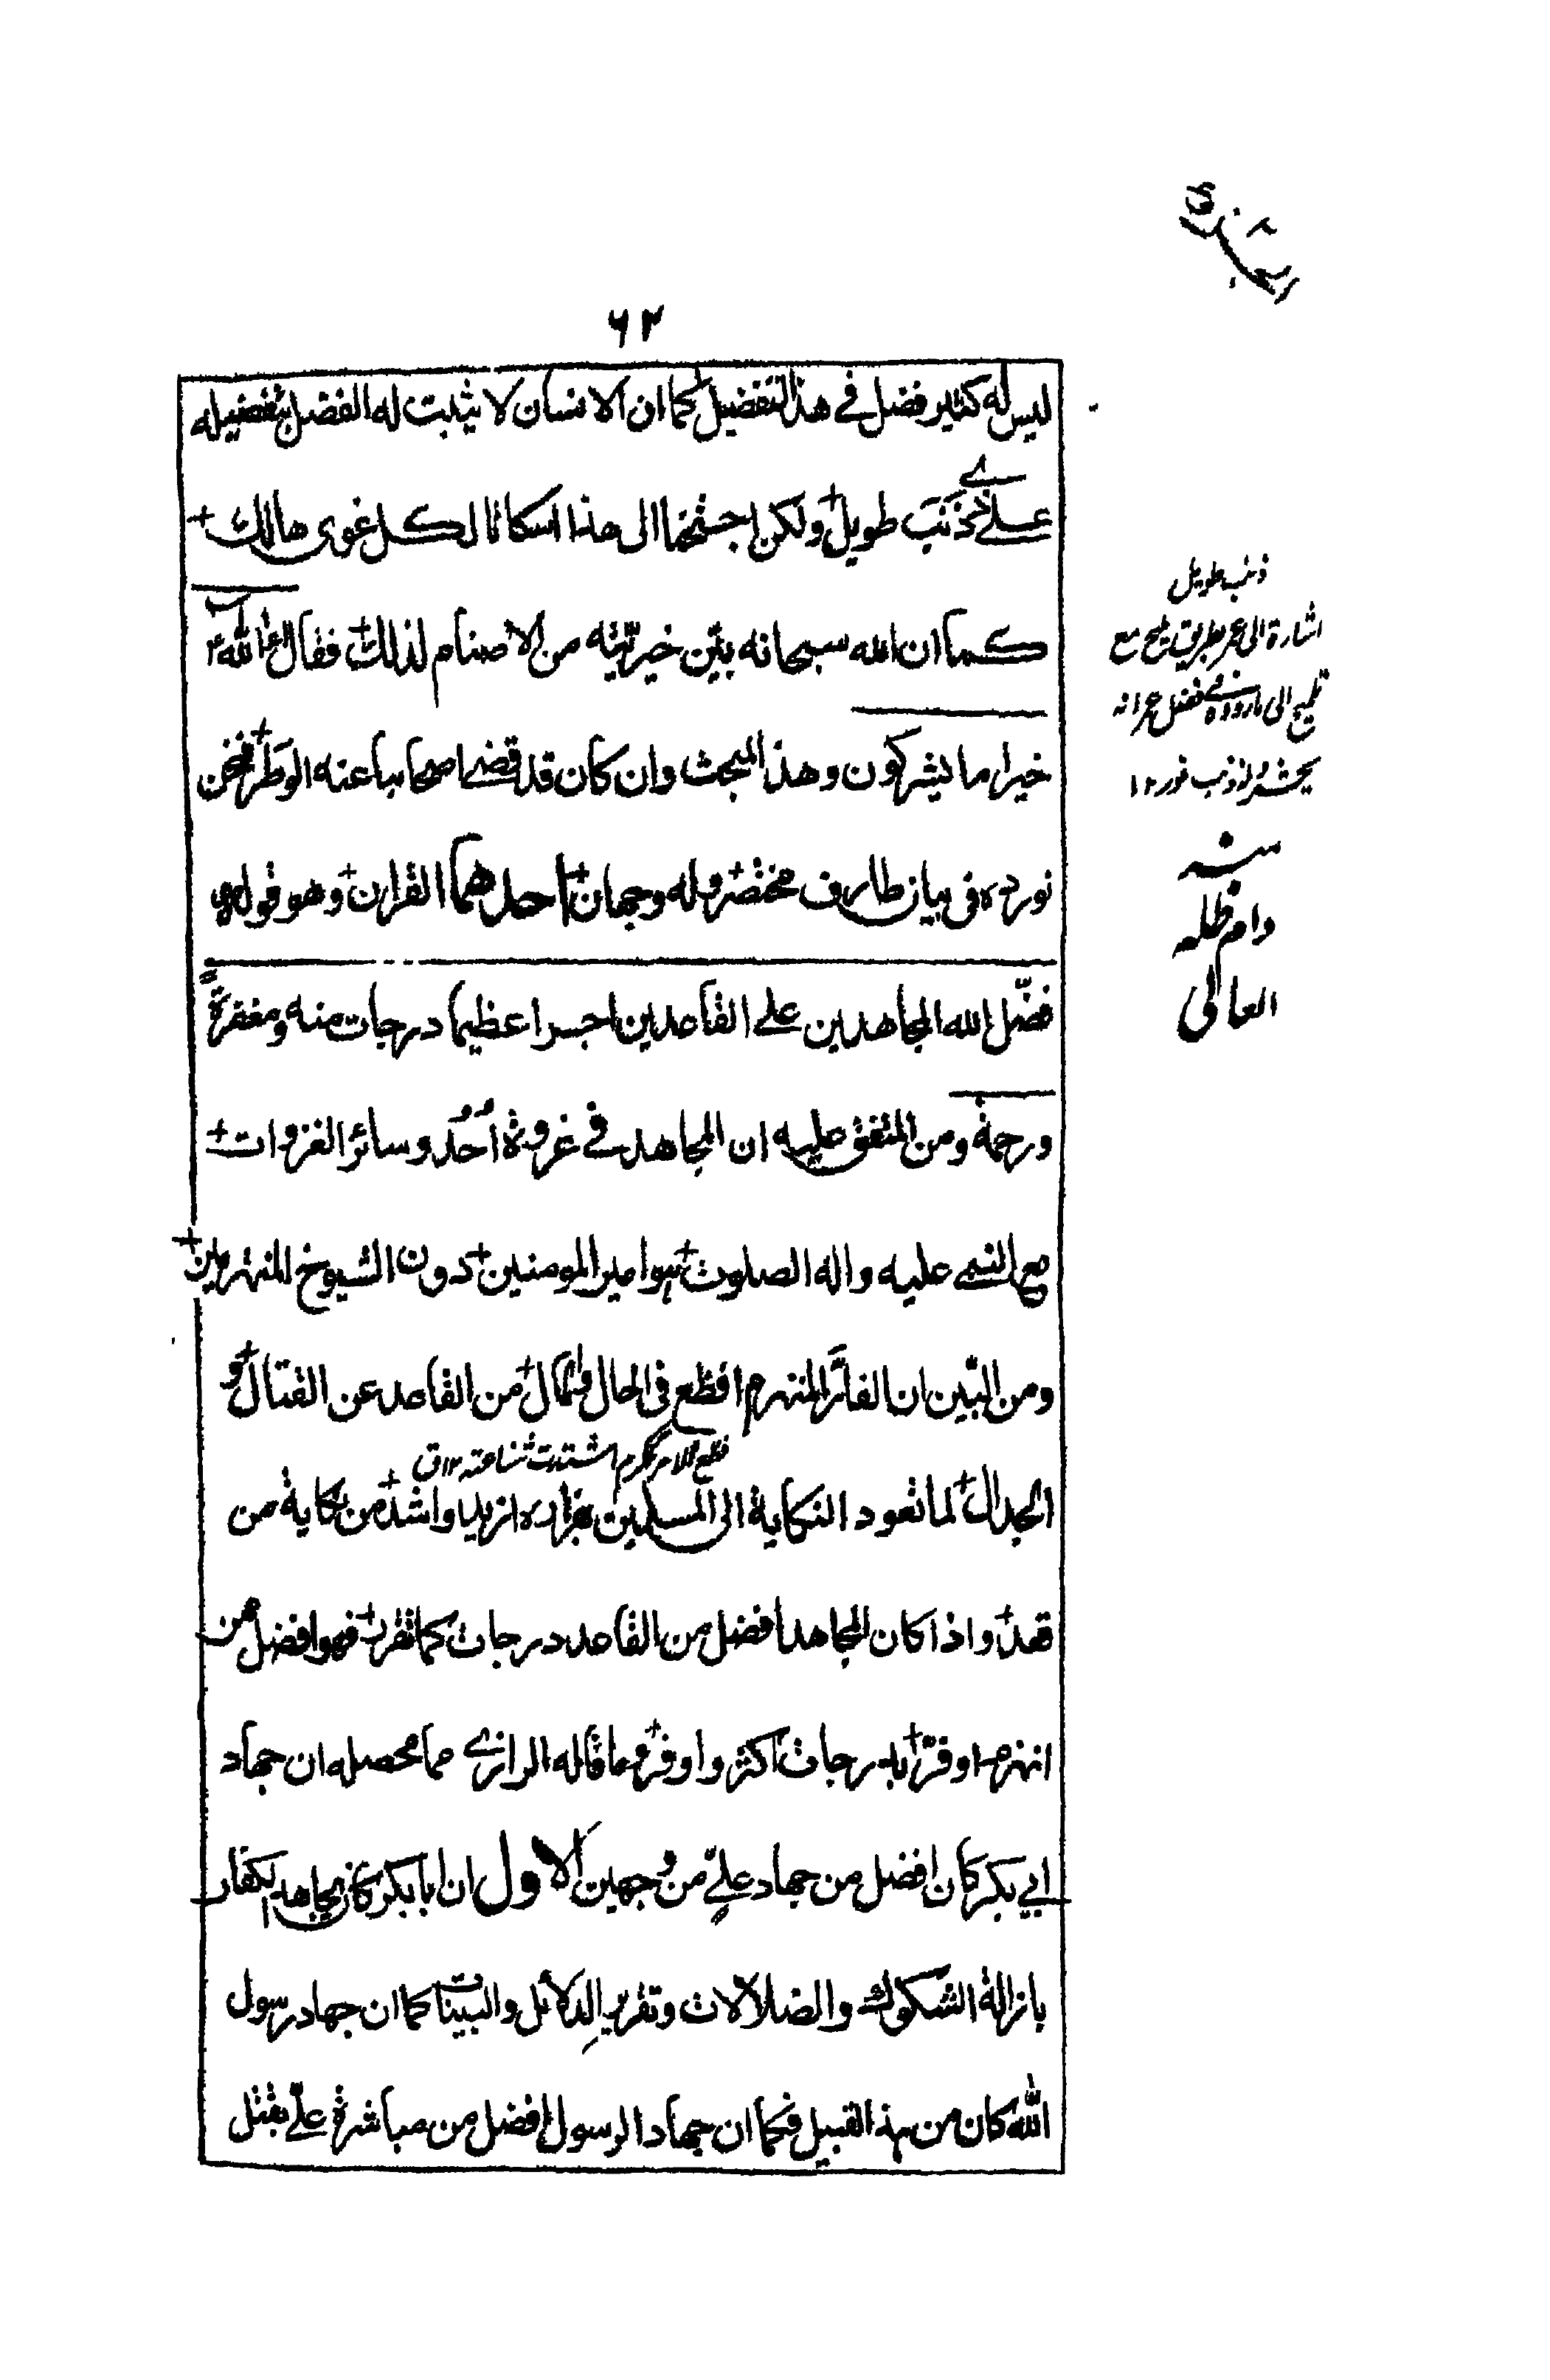 ۶۲
ليس له كثير فضل في هذا التفضيل كما ان الانسان لا يثبت له الفضل بتفضيله
على ذي ذنب طويل ولكن اجتمنا الى هذا اسكاتا لكل غوى هالك
كما ان الله سبحانه بيّن خيريّته من الاصنام لذلك فقال ءالله
خير اما يشركون وهذا المبحث وان كان قد قضى اصحابنا عنه الوطر فنحن
نورده في بيان طارف مختصر وله وجهان احدهما القران وهو قوله
فضّل الله المجاهدين على القاعدين اجرا عظيما درجات منه ومغفرةً
ورحمة ومن المتفق عليه ان المجاهد في غزوة اُحُد وسائر الغزوات
مع النبي عليه واله الصلوت هو امير المومنين دون الشيوخ المنهزمين
ومن البيّن ان الفارّ المنهزم افظع في الحال والمآل من القاعد عن القتال و
فظع الامر ككرم اشتدت شناعته ١٢ ق
الجدال لما تعود النكاية الى المسلمين بفراره ازيد واشد من نكاية من
قعد واذا كان المجاهد افضل من القاعد درجات كما تقرر فهو افضل من
انهزم او فرّ بدرجات اكثر واوفر وما قاله الرازي مما محصله ان جهاد
ابي بكر كان افضل من جهاد عليّ من وجهين الاول ان ابا بكر كان يجاهد الكفار
بازالة الشكوك والضلالات وتقرير الدلائل والبينات كما ان جهاد رسول
الله كان من هذا القبيل فكما ان جهاد الرسول افضل من مباشرة عليّ بقتل
ذنب طويل
اشارة الى عمر بطريق مليح مع
تلميح الى ما رووه في فضل عمر انه
يحشر وله ذنب نور ١٢
منه
دام ظله
العالى